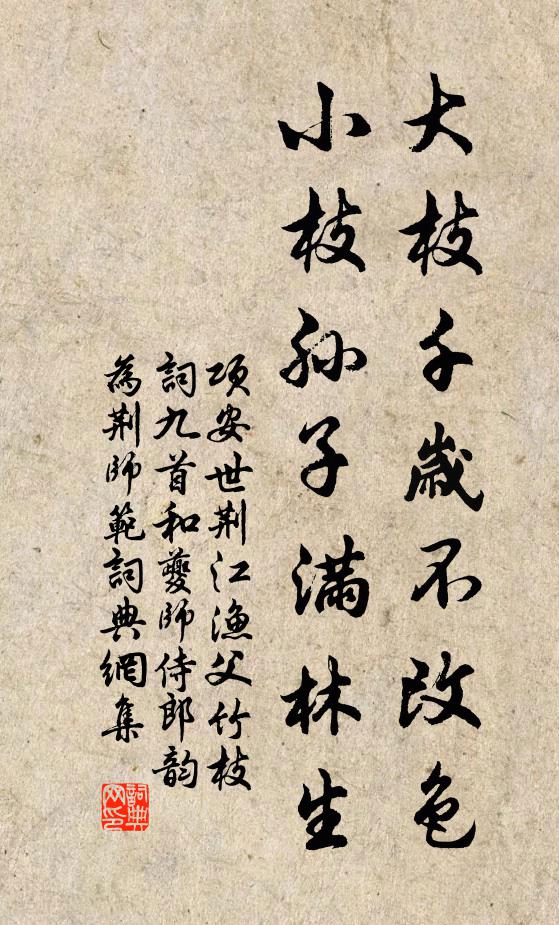 大枝千歲不改色
小枝孙子满林生
項安世荆江渔父竹枝
詞九首和夔師侍郎韵
為荆師範詞典網集
詞典网印